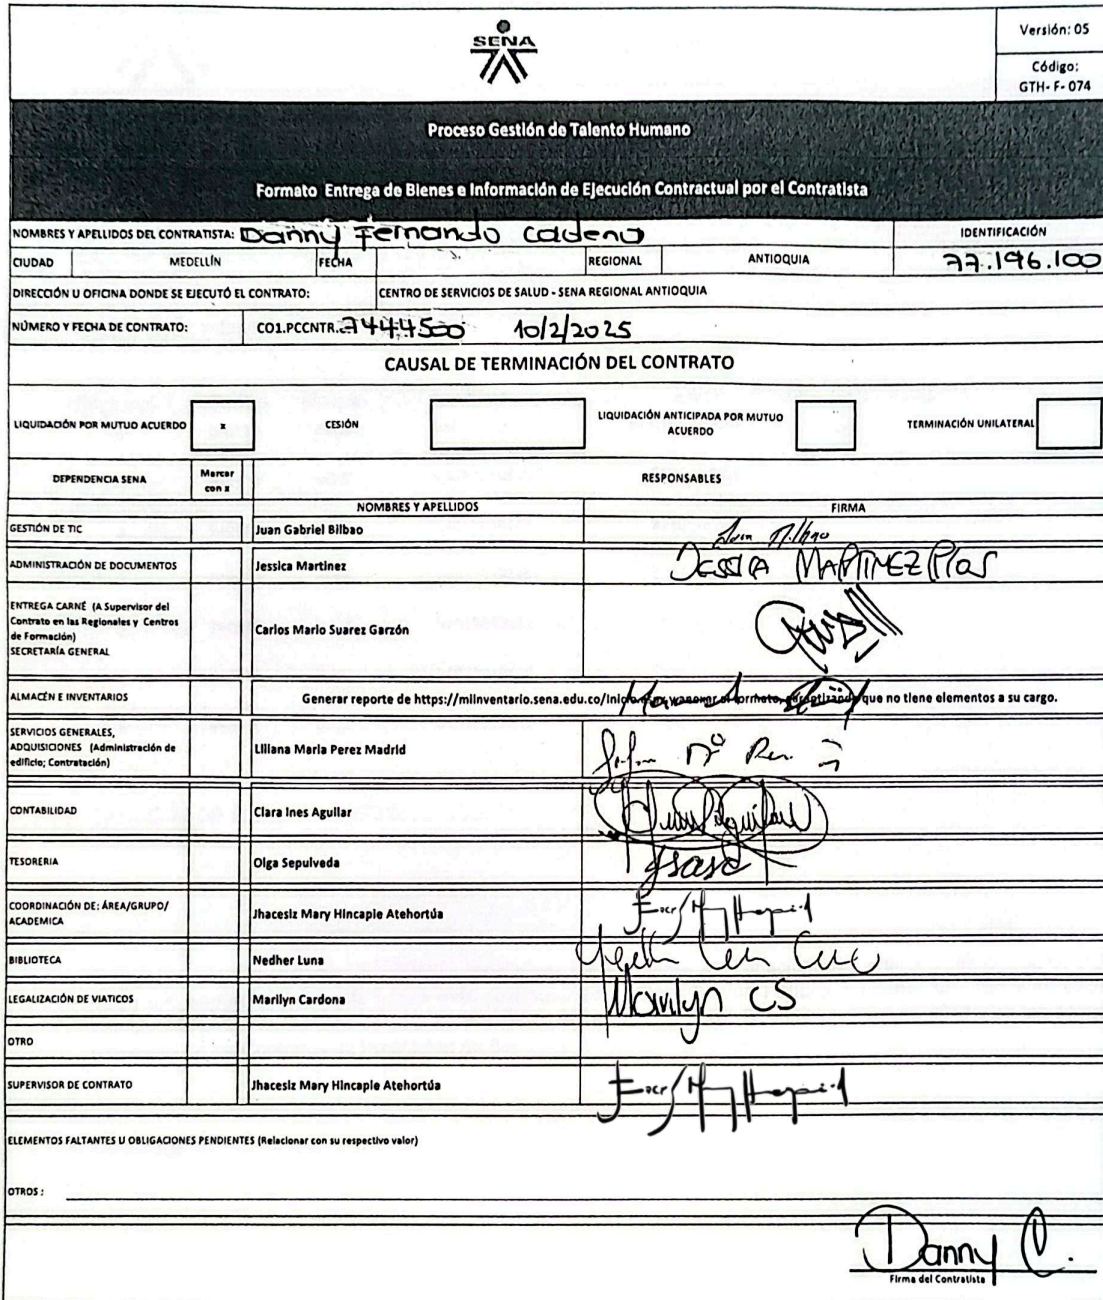 SENA
Versión: 05
Código:
GTH- F- 074
Proceso Gestión de Talento Humano
Formato Entrega de Bienes e Información de Ejecución Contractual por el Contratista
NOMBRES Y APELLIDOS DEL CONTRATISTA: Danny Fernando Cadena
IDENTIFICACIÓN
CIUDAD MEDELLÍN FECHA REGIONAL ANTIOQUIA 77.196.100
DIRECCIÓN U OFICINA DONDE SE EJECUTÓ EL CONTRATO: CENTRO DE SERVICIOS DE SALUD - SENA REGIONAL ANTIOQUIA
NÚMERO Y FECHA DE CONTRATO: CO1.PCCNTR.7444500 10/2/2025
CAUSAL DE TERMINACIÓN DEL CONTRATO
LIQUIDACIÓN POR MUTUO ACUERDO x CESIÓN LIQUIDACIÓN ANTICIPADA POR MUTUO ACUERDO TERMINACIÓN UNILATERAL
DEPENDENCIA SENA Marcar con x RESPONSABLES
NOMBRES Y APELLIDOS FIRMA
GESTIÓN DE TIC Juan Gabriel Bilbao
ADMINISTRACIÓN DE DOCUMENTOS Jessica Martinez JESSICA MARTINEZ
ENTREGA CARNÉ (A Supervisor del
Contrato en las Regionales y Centros
de Formación)
SECRETARÍA GENERAL
Carlos Mario Suarez Garzón
ALMACÉN E INVENTARIOS Generar reporte de https://miinventario.sena.edu.co/Inicio que no tiene elementos a su cargo.
SERVICIOS GENERALES,
ADQUISICIONES (Administración de
edificio; Contratación)
Liliana Maria Perez Madrid
CONTABILIDAD Clara Ines Aguilar
TESORERIA Olga Sepulveda
COORDINACIÓN DE: ÁREA/GRUPO/
ACADEMICA
Jhacesiz Mary Hincapie Atehortúa
BIBLIOTECA Nedher Luna
LEGALIZACIÓN DE VIATICOS Marilyn Cardona Marilyn CS
OTRO
SUPERVISOR DE CONTRATO Jhacesiz Mary Hincapie Atehortúa
ELEMENTOS FALTANTES U OBLIGACIONES PENDIENTES (Relacionar con su respectivo valor)
OTROS :
Danny C.
Firma del Contratista